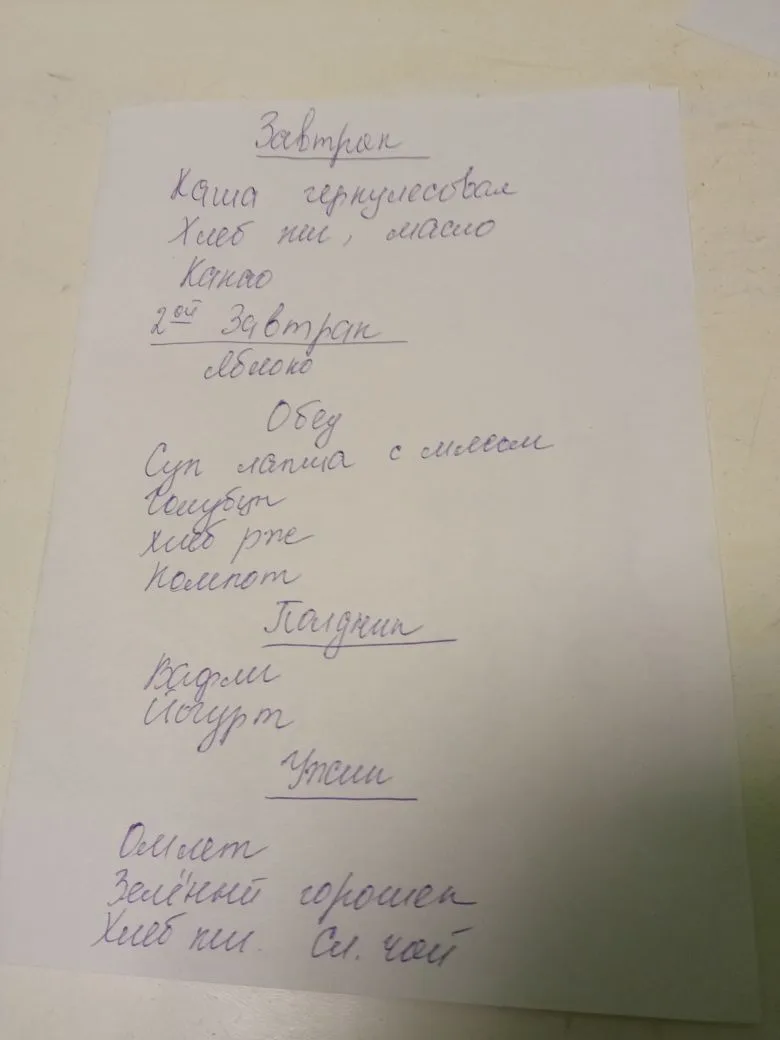 Завтрак
Каша геркулесовая
Хлеб пш, масло
Какао
2ой Завтрак
Яблоко
Обед
Суп лапша с мясом
Голубцы
Хлеб рж
Компот
Полдник
Вафли
Йогурт
Ужин
Омлет
Зелёный горошек
Хлеб пш. Сл. чай